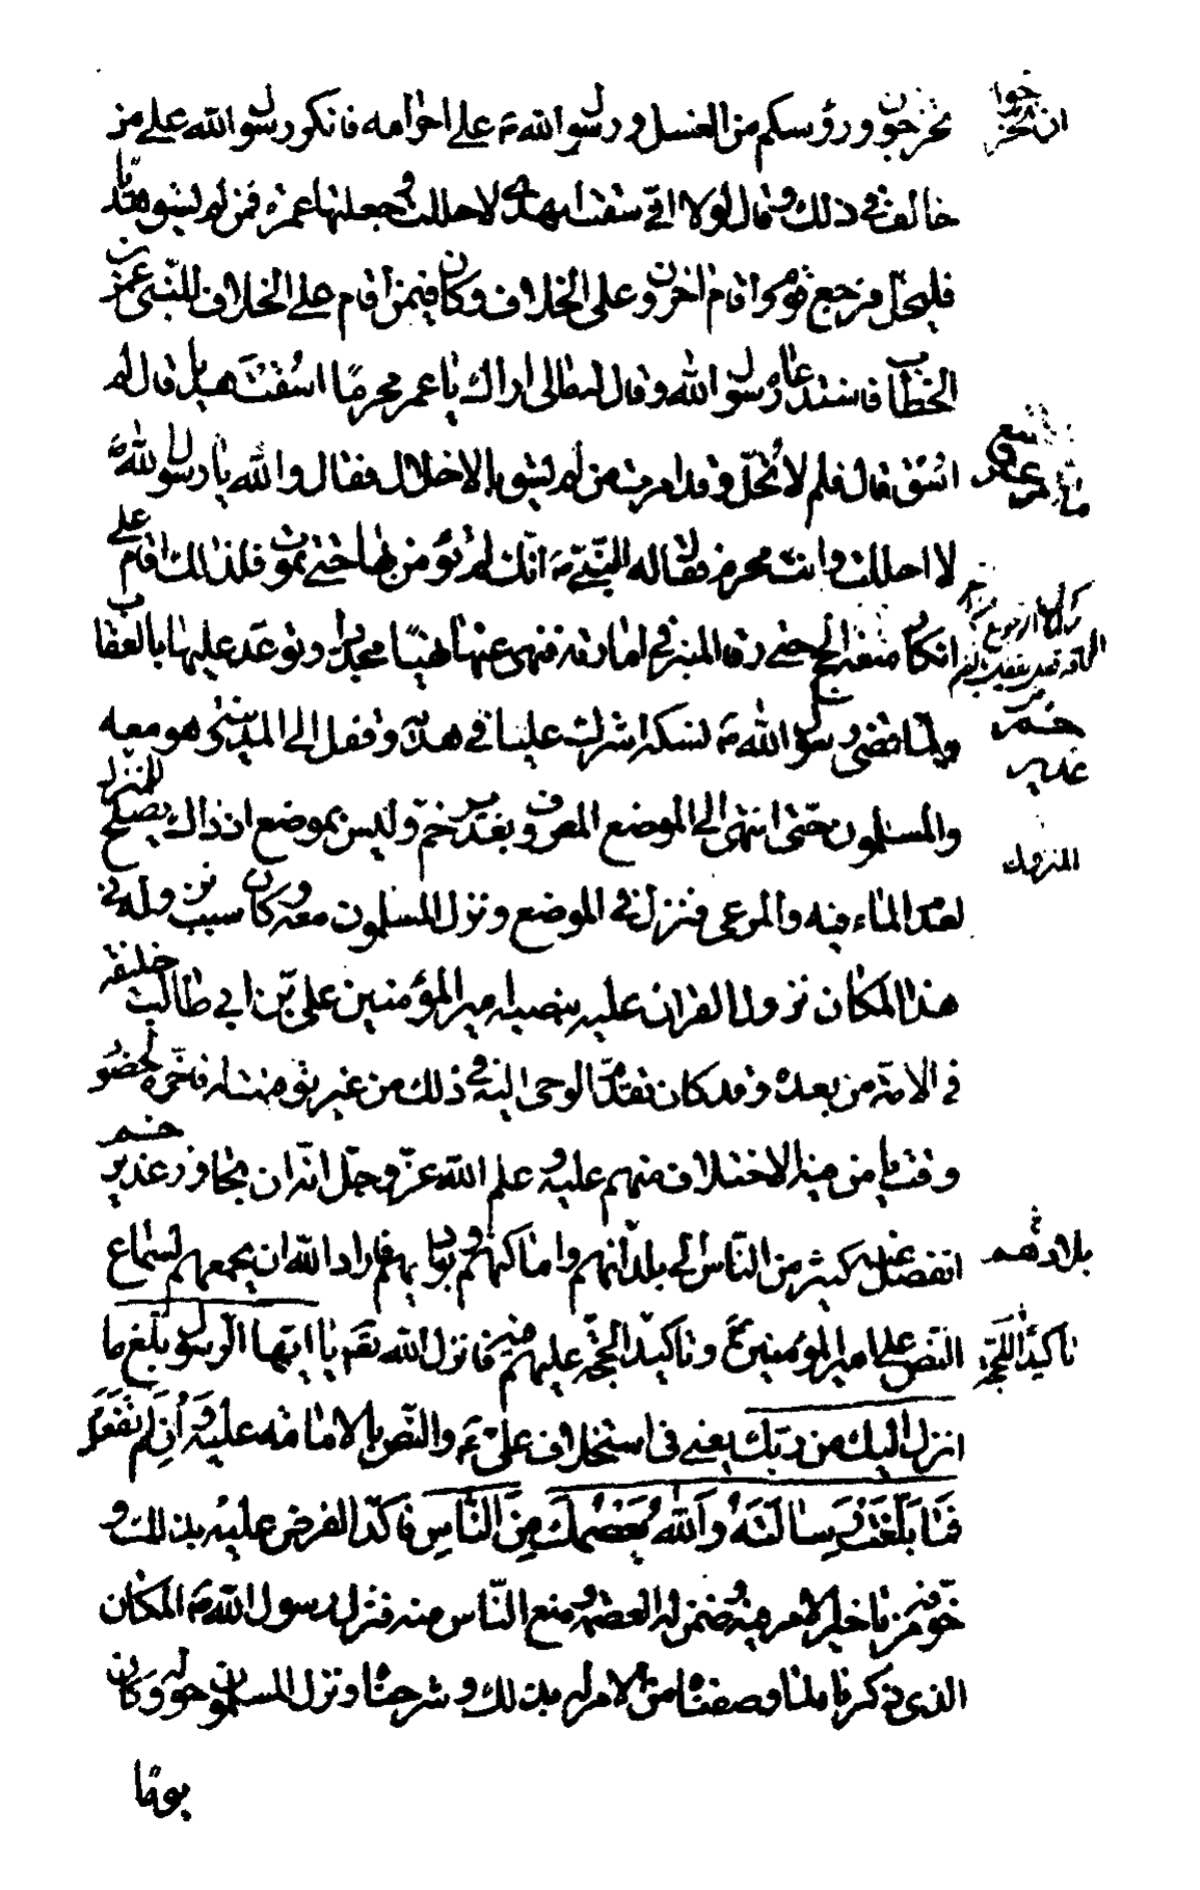 تخرجون ورؤسكم من الغسل ورسول الله ص على احرامه فانكر رسول الله على من
خالف في ذلك وقال لولا انى سقت الهدى لاحللت وجعلتها عمرة فمن لم يسق هديا
فليحل فرجع قوم واقام اخرون على الخلاف وكان فيمن اقام على الخلاف للنبى عمر بن
الخطاب فاستدعاه رسول الله وقال له مالى اراك يا عمر محرما اسقت هديا قال لم
اسق قال فلم لا تحل وقد امرت من لم يسق بالاحلال فقال والله يا رسول الله ص
لا احللت وانت محرم فقال له النبى ص انك لم تؤمن بها حتى تموت فلذلك اقام على
انكار متعة الحج حتى رقا المنبر فى امارته فنهى عنها نهيا مجددا وتوعد عليها بالعقاب
ولما قضى رسول الله ص نسكه اشرك عليا في هديه وقفل الى المدينة وهو معه
والمسلمون حتى انتهى الى الموضع المعروف بغدير خم وليس بموضع اذ ذاك يصلح للمنزل
لعدم الماء فيه والمرعى فنزل في الموضع ونزل المسلمون معه وكان سبب نزوله في
هذا المكان نزول القران عليه بنصبه امير المؤمنين على بن ابي طالب خليفة
في الامة من بعده وقد كان تقدم الوحى اليه في ذلك من غير توقيت له فاخره لحضور
وقت يامن فيه الاختلاف منهم عليه وعلم الله عز وجل انه ان تجاوز غدير خم
انفصل عنه كثير من الناس الى بلدانهم واماكنهم وبواديهم فاراد الله ان يجمعهم لسماع
النص على امير المؤمنين ع وتاكيد الحجة عليهم فيه فانزل الله تعم يا ايها الرسول بلغ ما
انزل اليك من ربك يعنى فى استخلاف على ع والنص بالامامة عليه وَاِن لَم تَفعَل
فَمَا بَلَّغتَ رِسَالَتَهُ وَاَللهُ يَعصِمُكَ مِنَ النَّاسِ فاكد الفرض عليه بذلك و
خوفه من تاخير الامر فيه وضمن له العصمة ومنع الناس منه فنزل رسول الله ص المكان
الذى ذكرناه لما وصفناه من الامر له بذلك وشرحناه ونزل المسلمون حوله وَكان
يومًا
خم
غدير
المنزل
بلادهم
تاكيدًا للحجة